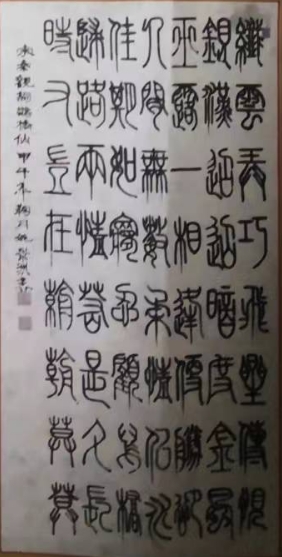 纖雲弄巧飛星傳恨
銀漢迢迢暗度金風
玉露一相逢便勝卻
人間無數柔情似水
佳期如夢忍顧鵲橋
歸路兩情若是久長
時又豈在朝朝暮暮
秦觀詞鵲橋仙 甲午年 月 書